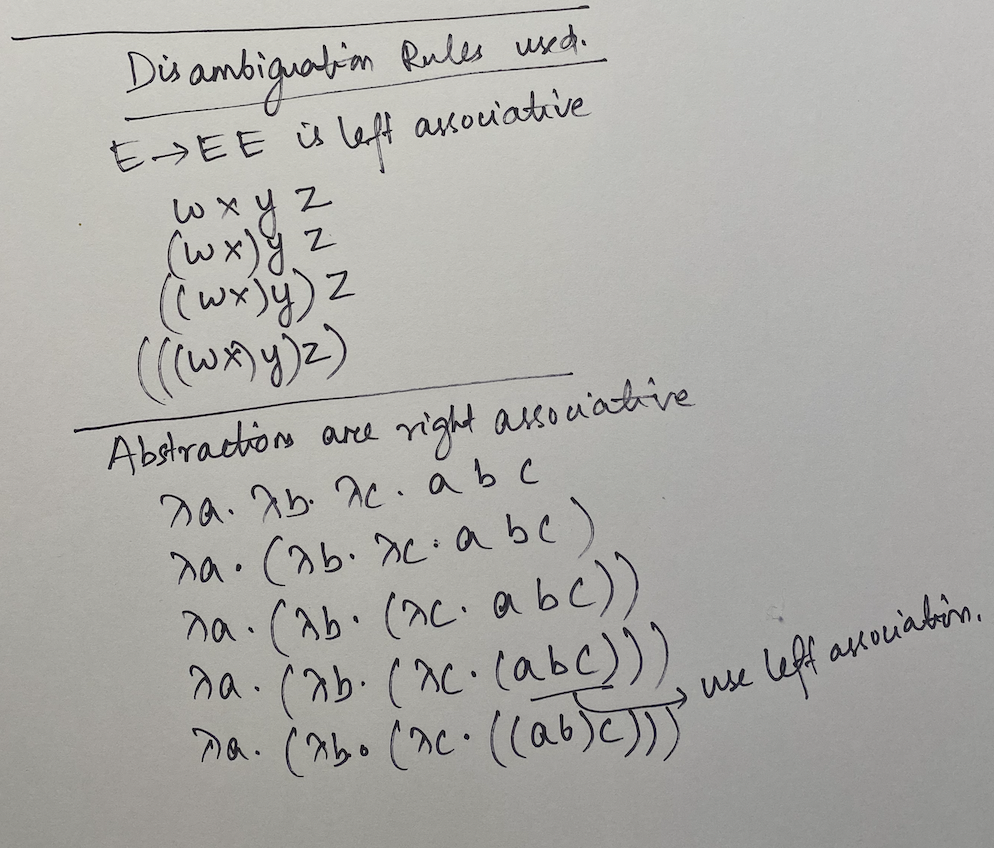 Disambiguation Rules used.
E→EE is left associative
w x y z
(w x) y z
((wx)y) z
(((wx)y)z)
Abstractions are right associative
λa. λb. λc. a b c
λa. (λb. λc. a b c)
λa. (λb. (λc. a b c))
λa. (λb. (λc. (abc))) → use left association.
λa. (λb. (λc. ((ab)c)))